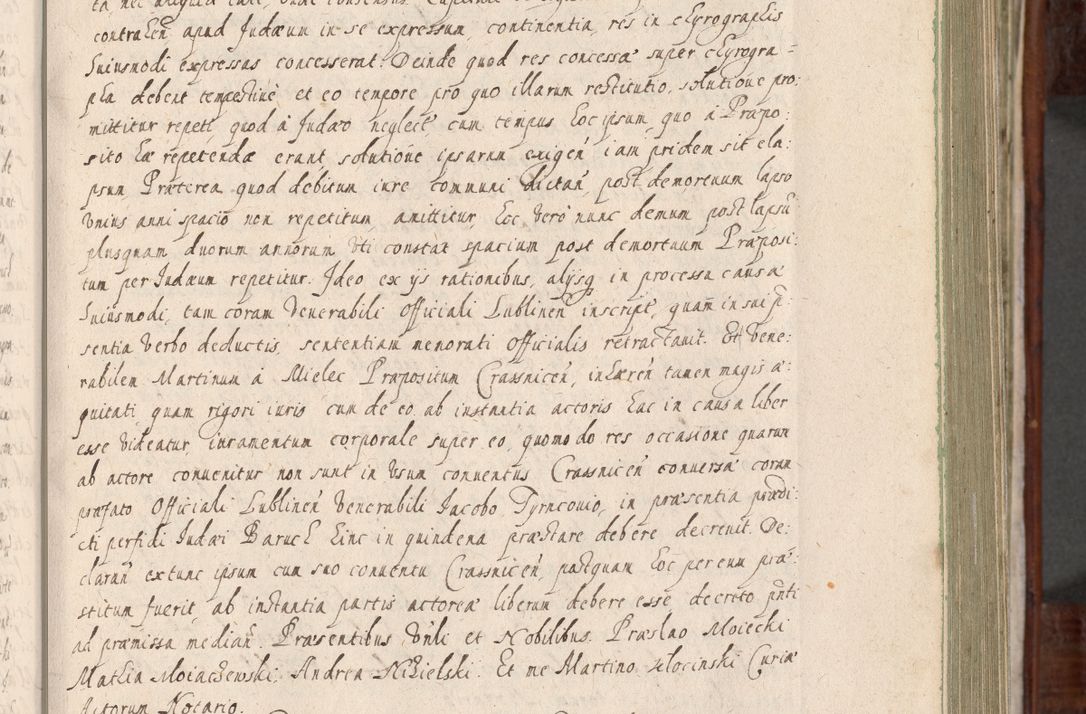 contrahen̄ apud Judæum in se expressum, continentia, res in chyrographis
huiusmodi expressas concesserat. Deinde quod res concessæ super chyrogra=
pha debent tempestiuè, et eo tempore pro quo illarum restitutio, solutione pro:
mittitur repeti, quod à Judæo neglect̃, cum tempus hoc ipsum, quo à Præpo:
sito hæ repetendæ erant, solutione ipsarum exigen̄ iam pridem sit ela:
psum. Præterea quod debitum iure communi dictan̄, post demortuum lapso
vnius anni spacio non repetitum, amittitur, hoc verò nunc demum post lapsũ
plusquam duorum annorum vti constat spacium post demortuum Præposi:
tum per Judæum repetitur. Ideo ex ijs rationibus, alijsq̃ in processu causæ
huiusmodi, tam coram Venerabili Officiali Lublinen̄ inscript̃, quam̄ in sui p̃:
sentia verbo deductis, sententiam memorati Officialis retractauit. Et Vene:
rabilem Martinum à Mielec Præpositum Crasnicen̄, inhæren̄ tamen magis æ:
quitati, quam rigori iuris cum de eo, ab instantia actoris hac in causa liber
esse videatur, iuramentum corporale super eo, quomodo res occasione quarum
ab actore conuenitur non sunt in vsum conuentus Crasnicen̄ conuersæ coram
præfato Officiali Lublinen̄ Venerabili Jacobo Tyrncouio, in præsentia prædi:
cti perfidi Judæi Baruch Hinc in quindena præstare debere decreuit. De:
claran̄ extunc ipsum cum suo conuentu Crasnicen̄, postquam hoc per eum præ:
stitum fuerit, ab instantia partis actoreæ liberum debere esse, decreto p̃nti
ad præmissa median̄. Præsentibus Vnli et Nobilibus. Præslao Moiecki
Mathia Moiaczewski, Andrea Nizielski. Et me Martino Zlocinski Curiæ
Actorum Notario.